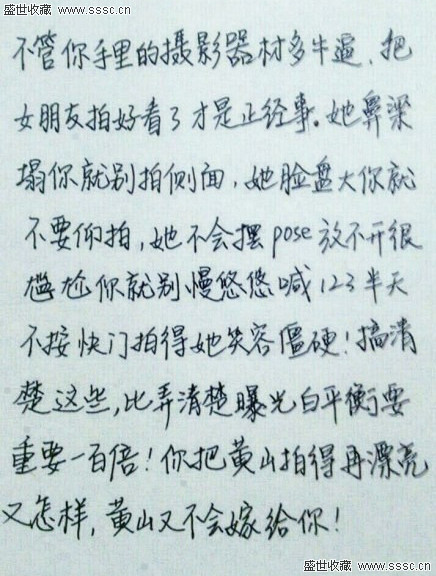 盛世收藏 www.sssc.cn
不管你手里的摄影器材多牛逼、把
女朋友拍好看了才是正经事。她鼻梁
塌你就别拍侧面，她脸盘大你就
不要仰拍，她不会摆pose放不开很
尴尬你就别慢悠悠喊123半天
不按快门拍得她笑容僵硬！搞清
楚这些，比弄清楚曝光白平衡要
重要一百倍！你把黄山拍得再漂亮
又怎样，黄山又不会嫁给你！
盛世收藏 www.sssc.cn